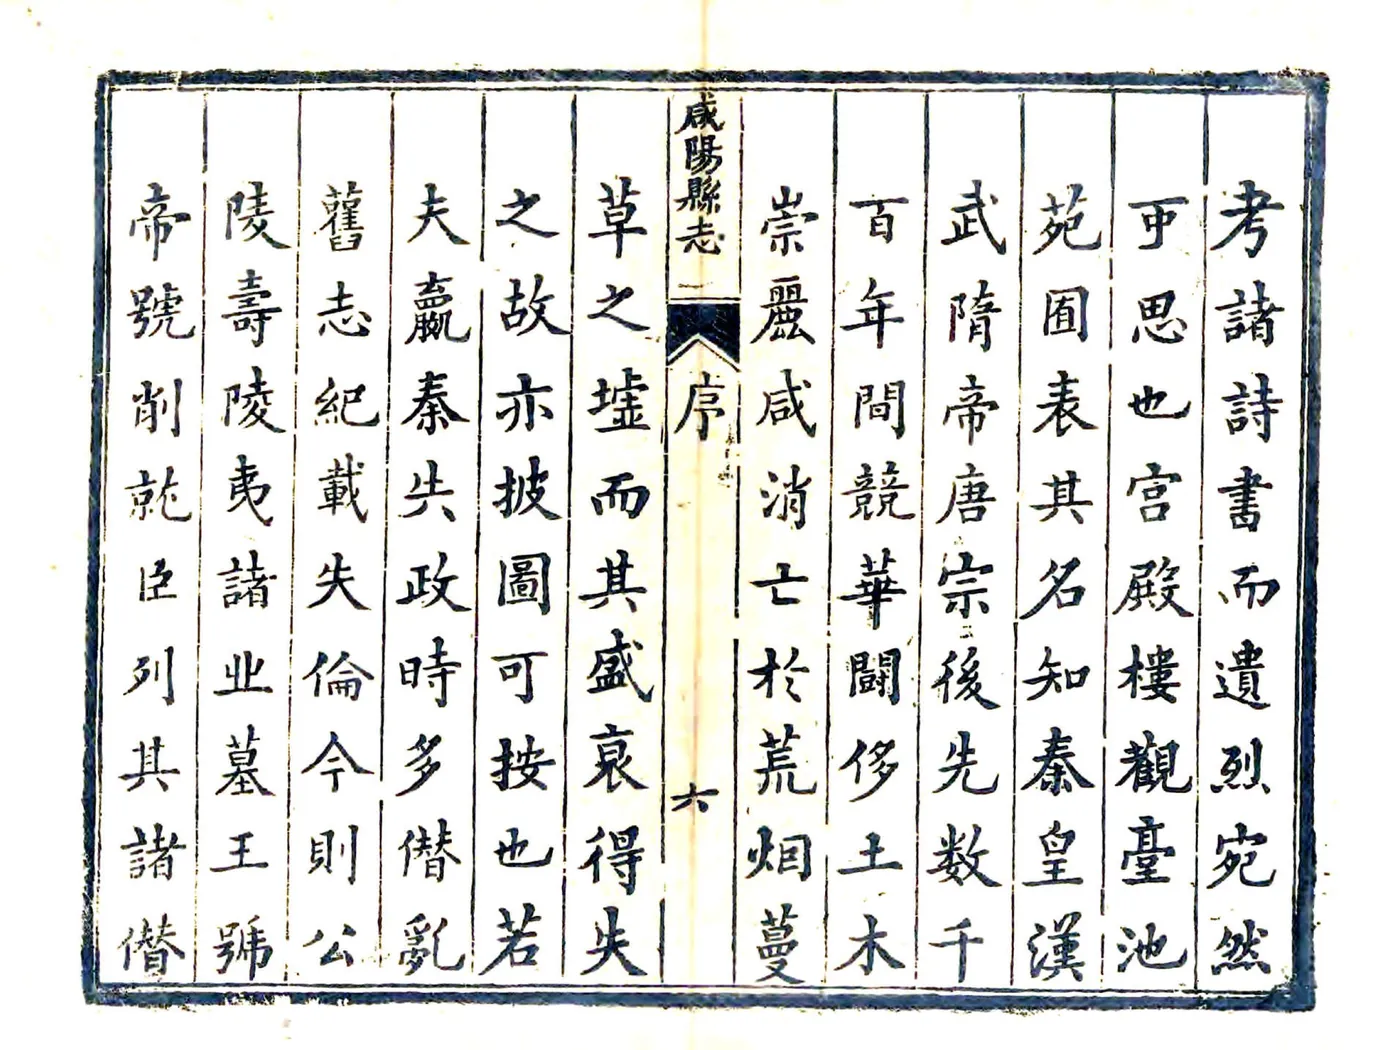 考諸詩書而遺烈宛然
可思也宮殿樓觀臺池
苑囿表其名知秦皇漢
武隋帝唐宗後先数千
百年間競華鬪侈土木
崇麗咸消亡於荒烟蔓
咸陽縣志
序
六
草之墟而其盛衰得失
之故亦披圖可按也若
夫嬴秦失政時多僣亂
舊志紀載失倫今則公
陵壽陵夷諸业墓王號
帝號削就臣列其諸僣